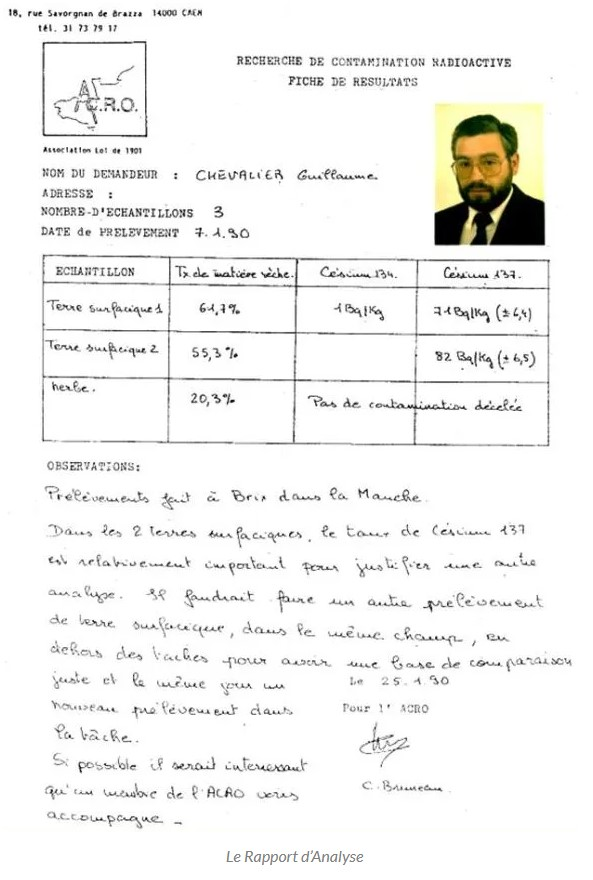 18, rue Savorgnan de Brazza 14000 CAEN
tél. 31 73 79 17
A.C.R.O.
Association Loi de 1901
RECHERCHE DE CONTAMINATION RADIOACTIVE
FICHE DE RESULTATS
NOM DU DEMANDEUR : CHEVALIER Guillaume
ADRESSE :
NOMBRE-D'ECHANTILLONS 3
DATE de PRELEVEMENT 7.1.90
ECHANTILLON Tx de matière sèche. Césium 134. Césium 137.
Terre surfacique 1 61,7% 1 Bq/Kg 71 Bq/Kg (± 6,4)
Terre surfacique 2 55,3% 82 Bq/Kg (± 6,5)
herbe. 20,3% Pas de contamination décelée
OBSERVATIONS:
Prélèvements fait à Brix dans la Manche.
Dans les 2 terres surfaciques, le taux de Césium 137
est relativement important pour justifier une autre
analyse. Il faudrait faire un autre prélèvement
de terre surfacique, dans le même champ, en
dehors des tâches pour avoir une base de comparaison
juste et le même jour un
nouveau prélèvement dans
la tâche.
Si possible il serait interressant
qu'un membre de l'ACRO vous
accompagne -
Le 25.1.90
Pour l'ACRO
C. Bruneau.
Le Rapport d'Analyse